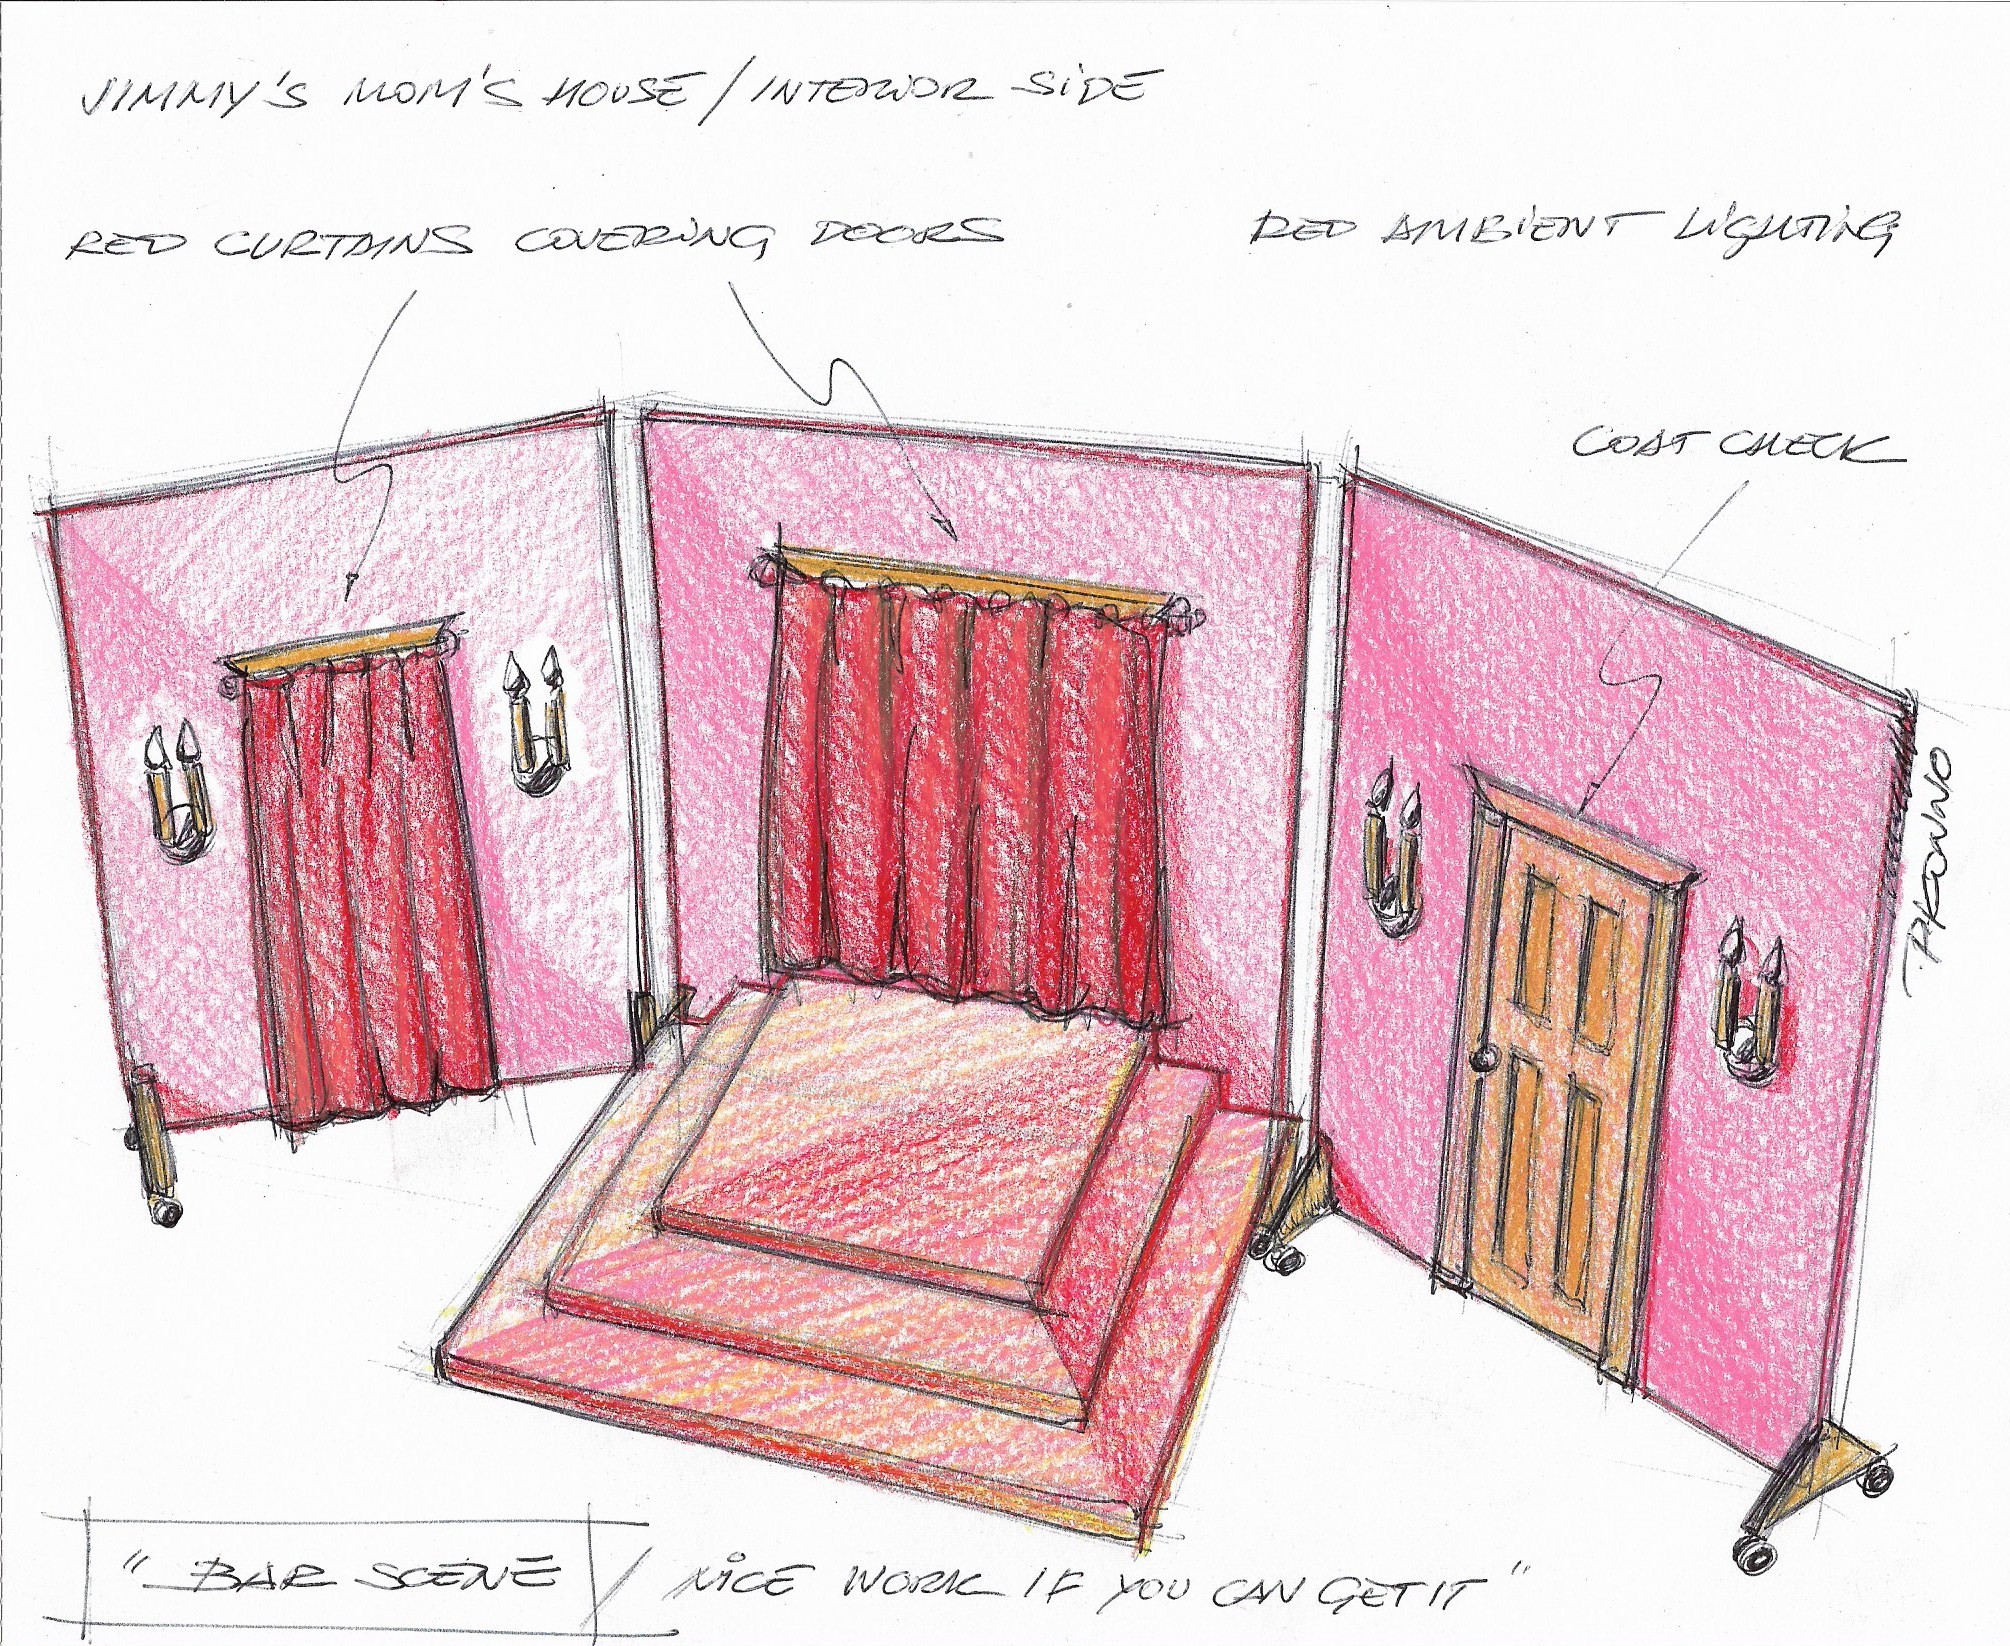 JIMMY'S MOM'S HOUSE / INTERIOR SIDE
RED CURTAINS COVERING DOORS
RED AMBIENT LIGHTING
COAT CHECK
PKONNO
"BAR SCENE / NICE WORK IF YOU CAN GET IT"